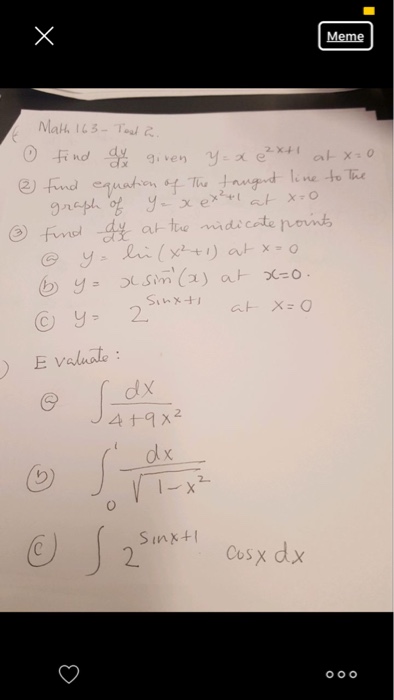 Meme
Math 163 - Test 2.
① Find dy/dx given y = x e^(2x+1) at x = 0
② Find equation of The tangent line to The
graph of y = x e^(x²+1) at x = 0
③ Find dy/dx at the indicate points
ⓐ y = ln (x²+1) at x = 0
ⓑ y = x sin⁻¹(x) at x=0.
ⓒ y = 2^(sinx+1) at x = 0
) Evaluate :
ⓐ ∫ dx/(4+9x²)
ⓑ ∫₀¹ dx/√(1-x²)
ⓒ ∫ 2^(sinx+1) cosx dx